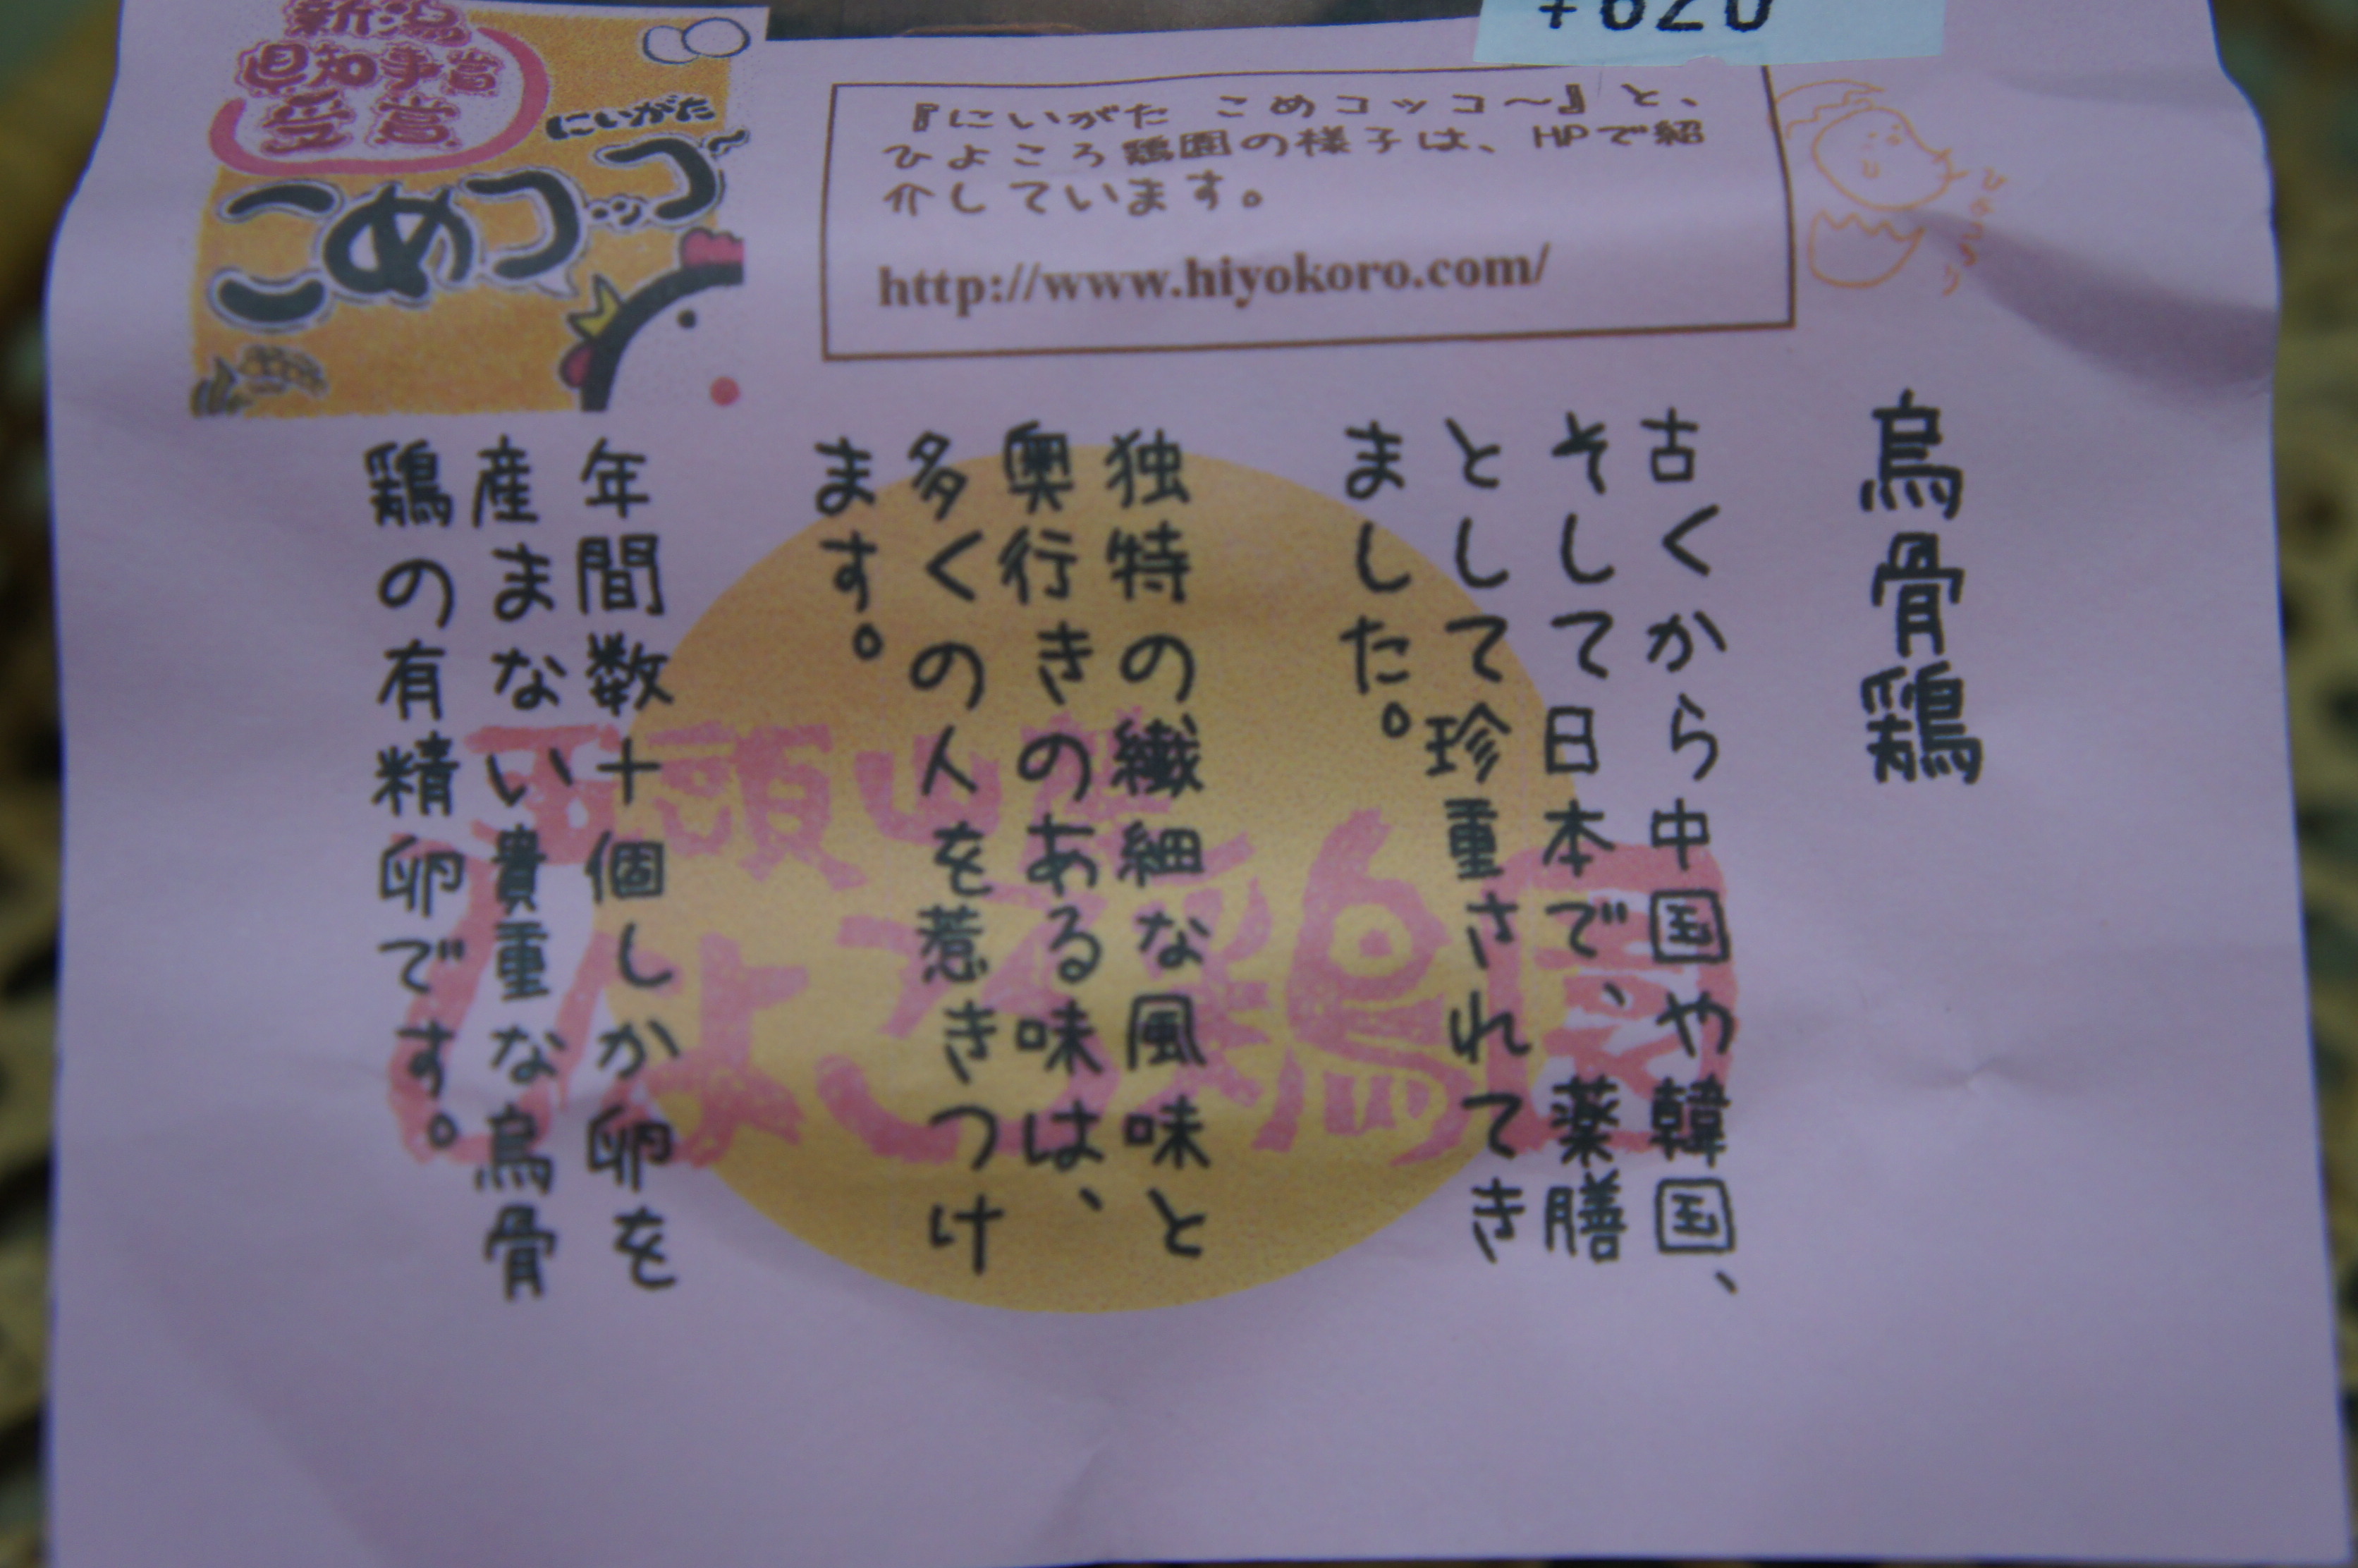 ¥620
新潟
県知事賞
受賞
にいがた
こめコッコ〜
『にいがた こめコッコ〜』と、
ひよころ鶏園の様子は、HPで紹
介しています。
http://www.hiyokoro.com/
ひよころっ
烏骨鶏
古くから中国や韓国、
そして日本で、薬膳
として珍重されてき
ました。
独特の繊細な風味と
奥行きのある味は、
多くの人を惹きつけ
ます。
年間数十個しか卵を
産まない貴重な烏骨
鶏の有精卵です。
五頭山麓
ひよころ鶏園